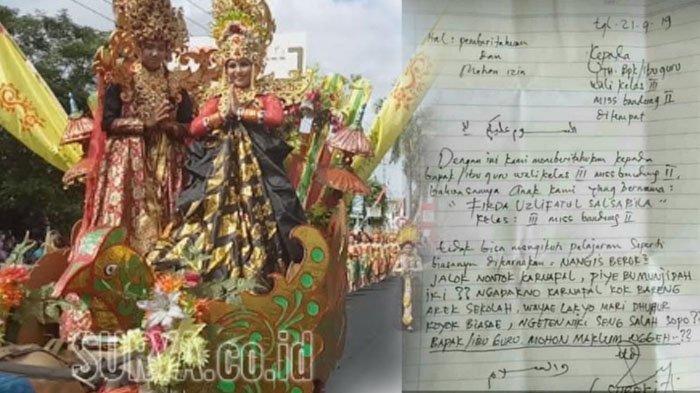 tgl. 21-9-19
Hal: pemberitahuan
dan
Mohon izin
Kepada
Yth. Bpk/ibu guru
wali kelas III
MISS bandung II
ditempat
السلام عليكم
Dengan ini kami memberitahukan kepada
bapak/ibu guru wali kelas III miss bandung II,
bahwasannya anak kami yang bernama:
" FIKDA UZLIFATUL SALSABILA "
Kelas: III miss bandung II
tidak bisa mengikuti pelajaran seperti
biasanya dikarnakan, NANGIS BEROK2
JALOK NONTOK KARNAPAL, PIYE BU MUNJIDAH
IKI ?? NGADAKNO KARNAPAL KOK BARENG
AREK SEKOLAH, WAYAE LAK YO MARI DHUHUR
KOYOK BIASAE, NGETEN NIKI SENG SALAH SOPO ??
BAPAK/IBU GURU MOHON MAKLUM NGGEH..??
والسلام
ttd
SURYA.co.id